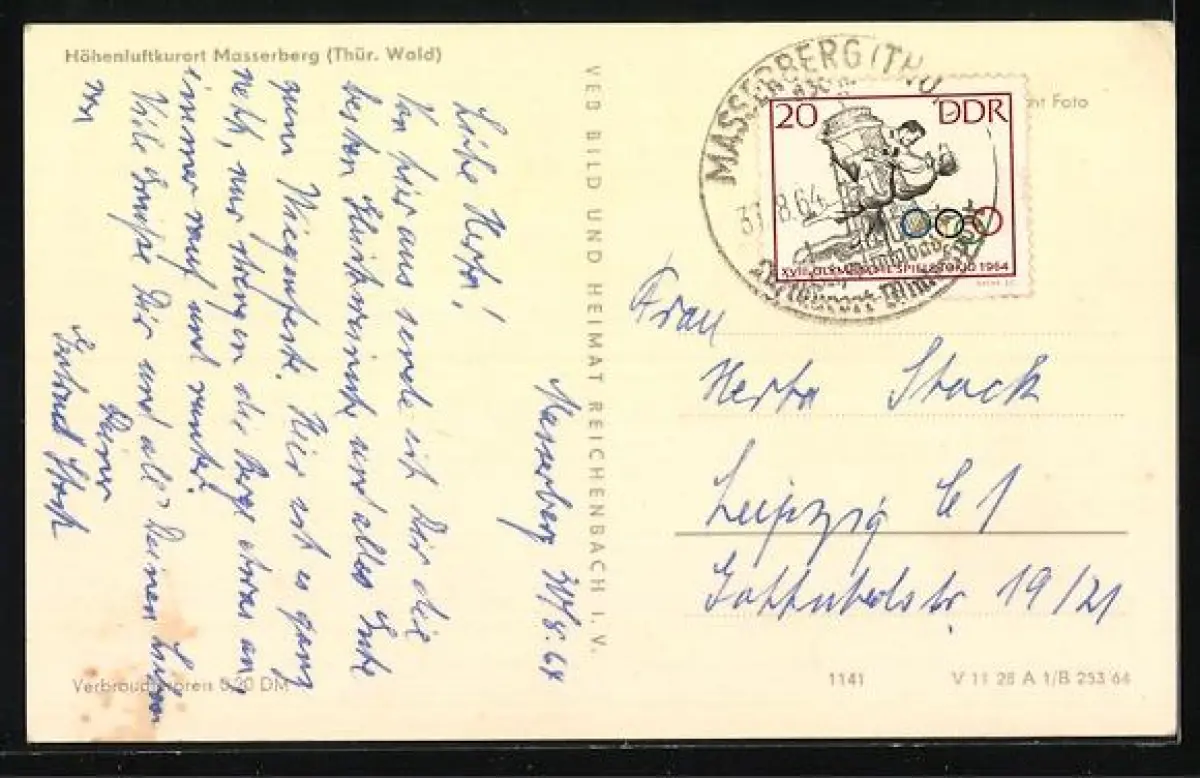 Höhenluftkurort Masserberg (Thür. Wald)
Masserberg 30/8.64
Liebe Herta!
Von hier aus sende ich Dir die
besten Glückwünsche und alles Gute
zum Wiegenfeste. Hier ist es ganz
nett, nur strengen die Berge etwas an,
immer rauf und runter.
Viele Grüße Dir und all' Deinen Lieben
von
Deiner
Gertraud Stack
Verbraucherpreis 0,20 DM
VEB BILD UND HEIMAT REICHENBACH I. V.
MASSERBERG (THÜ
31 8.64
20 DDR
XVIII. OLYMPISCHE SPIELE TOKIO 1964
Foto
Frau
Herta Stack
Leipzig C 1
19/21
1141
V 11 28 A 1/B 253 64